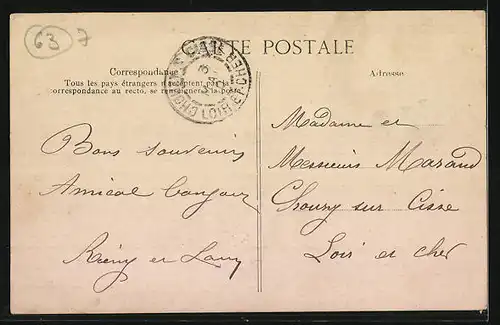 63 7
CARTE POSTALE
Correspondance
Tous les pays étrangers n'acceptent pas la
correspondance au recto, se renseigner à la poste
Bons souvenirs
Amical bonjour
Rémy et
Adresse
Madame et
Messieurs Marand
Chouzy sur Cisse
Loir et cher
LOIR-ET-CHER